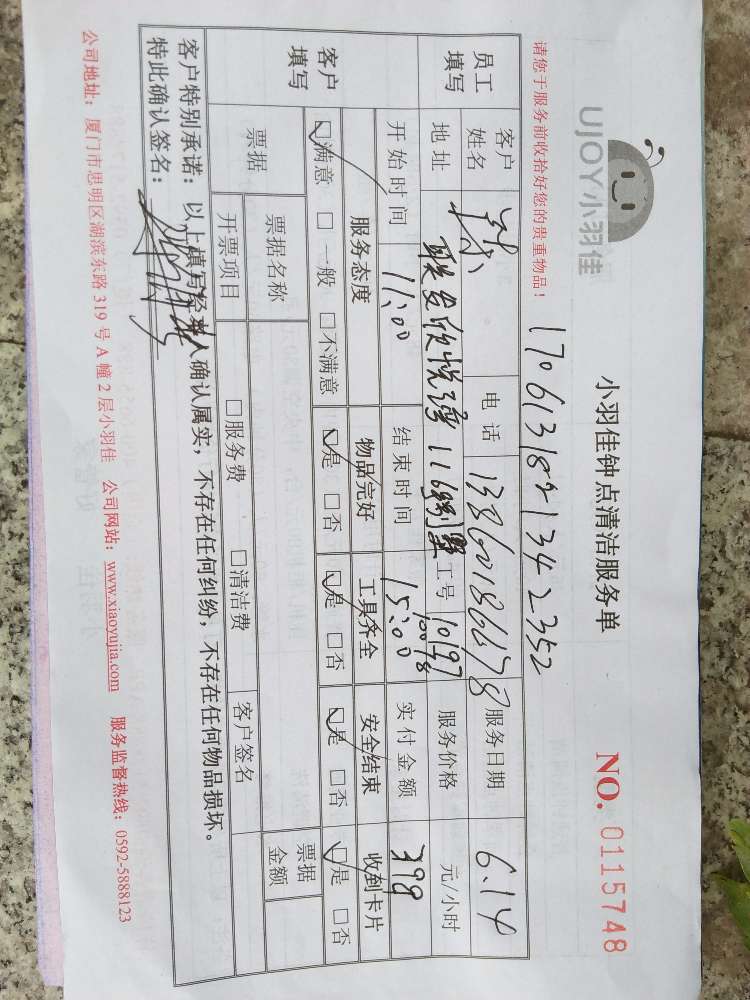 UJOY小羽佳
小羽佳钟点清洁服务单
NO. 0115748
请您于服务前收拾好您的贵重物品!
170613184134 2352
员工填写
客户姓名 电话 13860186678 服务日期 6.14
地址 联发欣悦 116 工号 服务价格 元/小时
开始时间 11:00 结束时间 15:00 实付金额 398
客户填写
服务态度 物品完好 工具齐全 安全结束 收到卡片
☑满意 □一般 □不满意 ☑是 □否 ☑是 □否 ☑是 □否 ☑是 □否
票据 票据名称 票据金额
开票项目 □服务费 □清洁费 客户签名
客户特别承诺:以上填写经本人确认属实,不存在任何纠纷,不存在任何物品损坏。
特此确认签名:
公司地址:厦门市思明区湖滨东路 319 号 A 幢 2 层小羽佳 公司网站:www.xiaoyujia.com 服务监督热线:0592-5888123